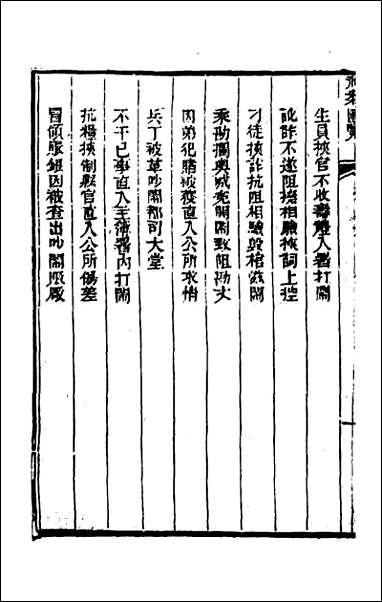 生員挾官不收壽禮入署打鬧
訛詐不遂阻撓相驗挾詞上控
刁徒挾詐抗阻相驗毀棺滋鬧
乘勘攔輿喊冤鬧堂致阻勘丈
因弟犯賭被獲直入公所求情
兵丁被革吵鬧都司大堂
不干己事直入主簿署內打鬧
抗糧挾制縣官直入公所傷差
冒領賑銀因被查出吵鬧賑廠